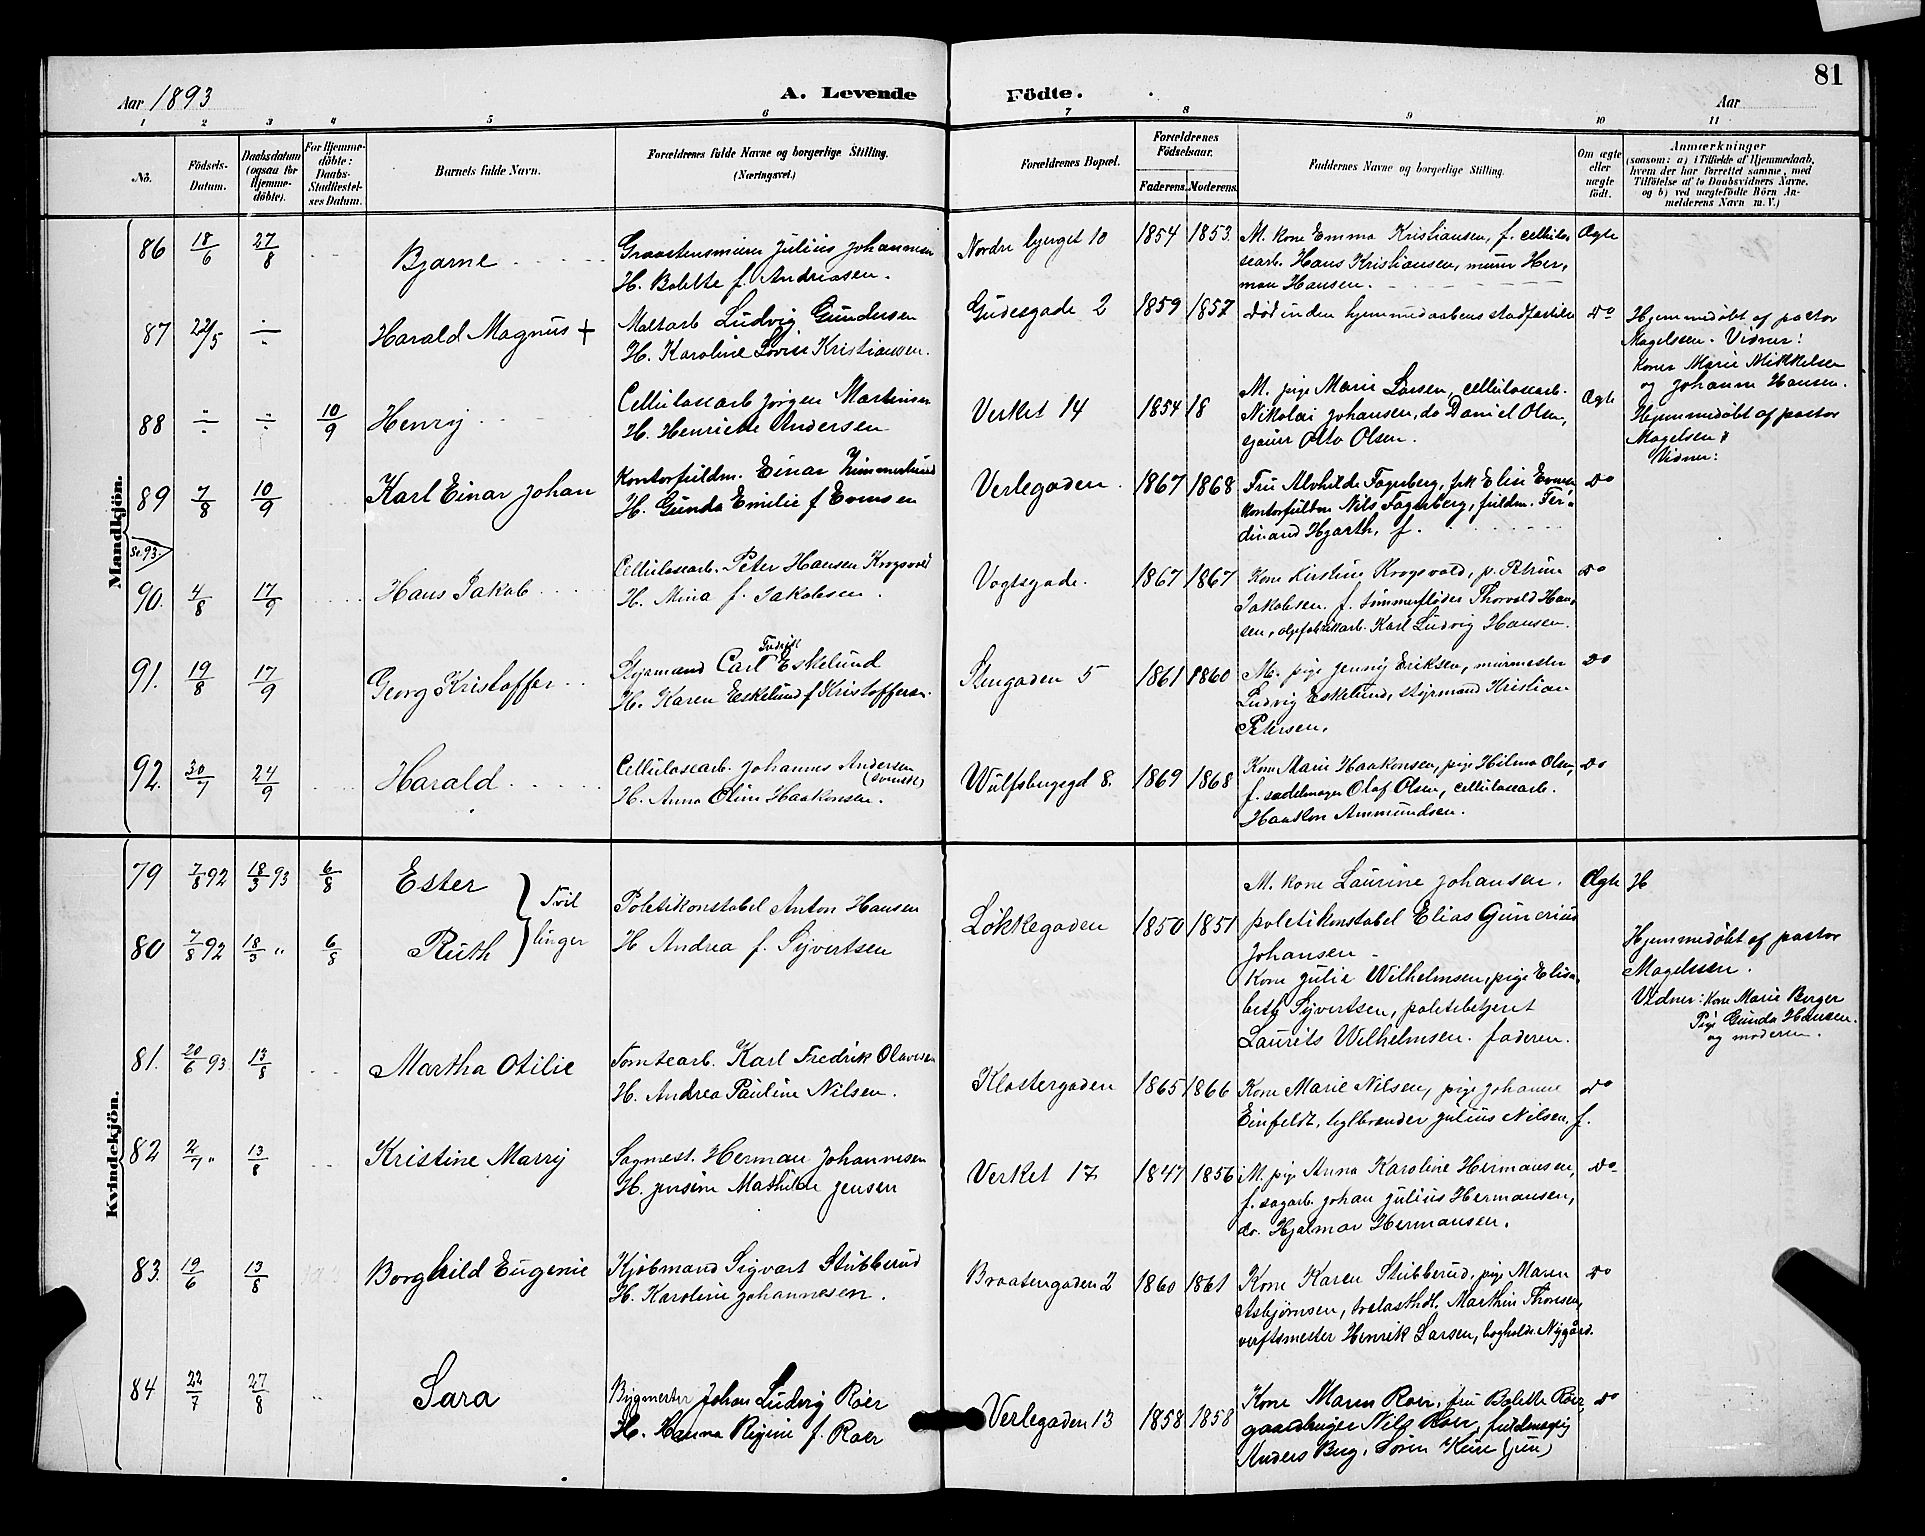 81
Aar 1893
A. Levende Födte.
Aar
1 2 3 4 5 6 7 8 9 10 11
No.
Födsels-Datum.
Daabsdatum (ogsaa for Hjemme-döbte).
For Hjemme-döbte: Daabs-Stadfæstel-ses Datum.
Barnets fulde Navn.
Forældrenes fulde Navne og borgerlige Stilling. (Næringsvei.)
Forældrenes Bopæl.
Forældrenes Födselsaar.
Faderens. Moderens.
Faddernes Navne og borgerlige Stilling.
Om ægte eller uægte født.
Anmærkninger
(saasom: a) i Tilfælde af Hjemmedaab, hvem der har forrettet samme, med Tilföielse af to Daabsvidners Navne, og b) ved uægtefödte Börn An-melderens Navn m. V.)
Mandkjön.
86 18/6 27/8 Bjarne
Graastensmurer Julius Johannesen
H. Bolette f. Andreasen.
Nordre bjerget 10 1854 1853.
M. kone Emma Kristiansen, f. cellulo-
searb. Hans Kristiansen, murer Her-
man Hansen.
Ægte
87 22/5 ÷ Harald Magnus +
Maltarb Ludvig Gundersen
H. Karoline Lovise Kristiansen.
Gudesgade 2 1859 1857
død inden hjemmedaabens stadfæstelse
Do
Hjemmedøbt af pastor
Magelssen. Vidner:
Koner Marie Mikkelsen
og Johanne Hansen.
88 ÷ ÷ 10/9 Henry
Cellulosearb Jørgen Martinsen
H. Henriette Andersen
Verket 14 1854 18
M. pige Marie Larsen, cellulosearb.
Nikolai Johansen, do Daniel Olsen,
Otto Olsen.
Ægte
Hjemmedøbt af pastor
Magelsen
Vidner:
89 7/8 10/9 Karl Einar Johan
Kontorfuldm. Einar Zimmerlund
H. Gunda Emilie f Evensen
Verlegaden 1867 1868
Fru Alvhilde Fagerberg, frk Elise Evensen
Kontorfuldm Nils Fagerberg, fuldm. Fer-
dinand Hjarth, f.
Do
Se 93.
90. 4/8 17/9 Hans Jakob
Cellulosearb. Peter Hansen Krogsvold
H. Mina f. Jakobsen.
Vogtsgade. 1867 1867
Kone Kirstine Krogsvold, p. Petrine
Jakobsen. f. tømmerfløder Thorvald Han-
sen, Karl Ludvig Hansen.
Do
91. 19/8 17/9 Georg Kristoffer
Fredrik
Styrmand Carl Eskelund
H. Karen Eskelund f Kristoffersen.
Stengaden 5 1861 1860
M. pige Jenny Eriksen, murmester
Ludvig Eskelund, styrmand Kristian
Petersen.
Do
92. 30/7 24/9 Harald
Cellulosearb. Johannes Andersen
(svensk)
H. Anna Oline Haakonsen.
Wulfsbergsgd 8. 1869 1868
Kone Marie Haakonsen, pige Hilma Olsen,
f. sadelmager Olaf Olsen, cellulosearb.
Haakon Ammundsen.
Do
Kvindekjön.
79 7/8 92 18/3 93 6/8 Ester
80 7/8 92 18/3 " 6/8 Ruth
Tvil
linger
Politikonstabel Anton Hansen
H Andrea f. Syvertsen
Løkkegaden 1850 1851
M. kone Laurine Johansen.
politikonstabel Elias Gunerius
Johansen
Kone Julie Wilhelmsen, pige Elisa-
beth Syvertsen, politibetjent
Laurits Wilhelmsen. faderen.
Ægte
H
Hjemmedøbt af pastor
Magelssen.
Vidner: Kone Marie Berger
Pige Gunda Hansen.
og moderen.
81. 20/6 93 13/8 Martha Otilie
Tomtearb. Karl Fredrik Olavesen
H. Andrea Pauline Nilsen.
Klostergaden 1865 1866
Kone Marie Nilsen, pige Johanne
Einfeldt, teglbrænder Julius Nilsen, f.
Do
82 2/7 " 13/8 Kristine Marry
Sagmest. Herman Johannesen
H. Jensine Mathilde Jensen
Verket 17 1847 1856
M. pige Anna Karoline Hermansen,
f. sagarb. Johan Julius Hermansen,
do. Hjalmar Hermansen.
Do
83. 19/6 13/8 Borghild Eugenie
Kjøbmand Sigvart Stubberud
H. Karoline Johannesen.
Braatengaden 2 1860 1861
Kone Karen Stubberud, pige Maren
Asbjørnsen, trælasthdl. Marthin Thoresen,
verftsmester Henrik Larsen, bogholder Nygård.
Do
84 22/7 27/8 Sara
Bygmester Johan Ludvig Roer
H. Hanna Regine f. Roer
Verlegaden 13 1858 1858
Kone Maren Roer, fru Bolette Roer
gaardbruger Nils Roer, fuldmægtig
Anders Berg, Søren
Do